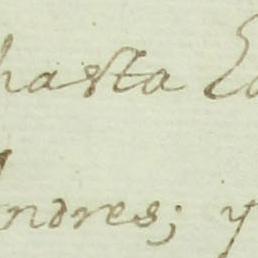 hasta
ndres; y